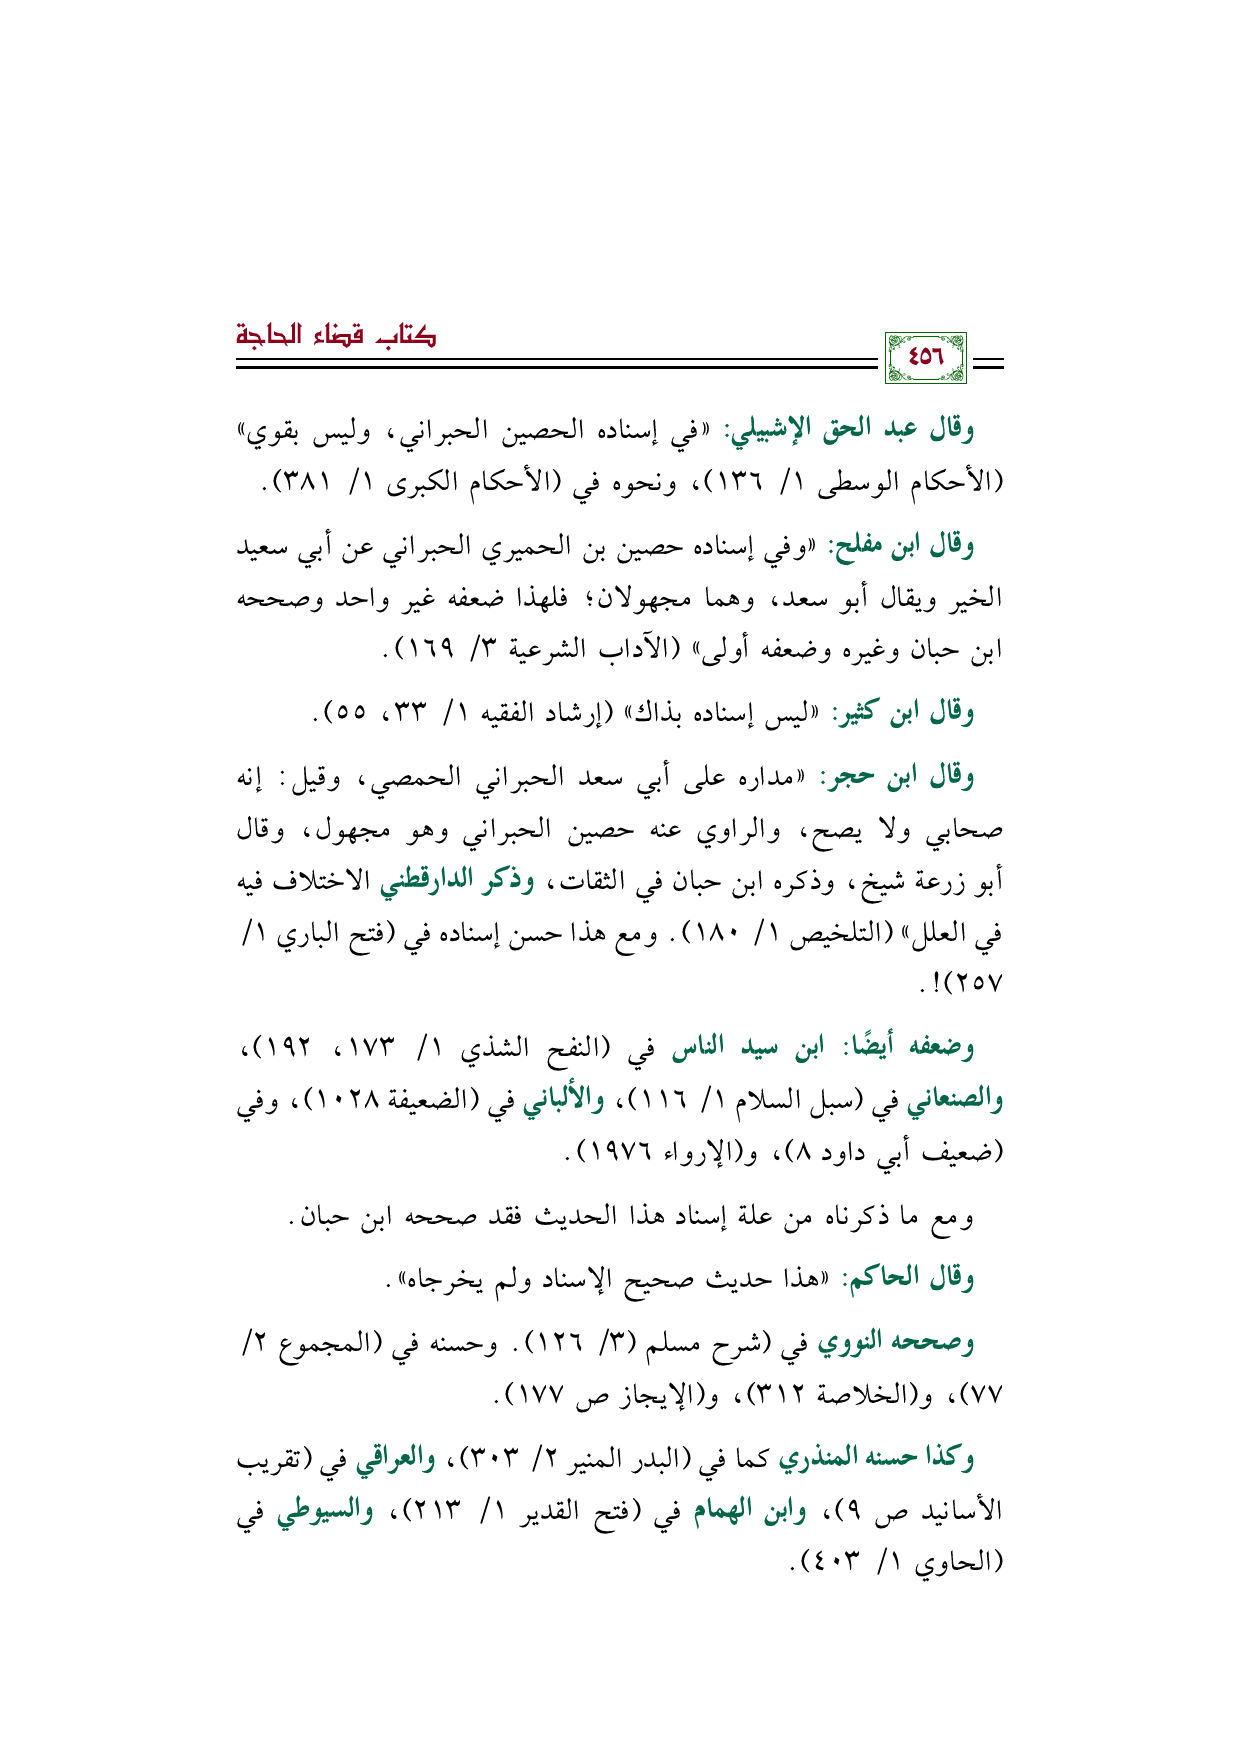 كتاب قضاء الحاجة
٤٥٦
وقال عبد الحق الإشبيلي: «في إسناده الحصين الحبراني، وليس بقوي»
(الأحكام الوسطى ١/ ١٣٦)، ونحوه في (الأحكام الكبرى ١/ ٣٨١).
وقال ابن مفلح: «وفي إسناده حصين بن الحميري الحبراني عن أبي سعيد
الخير ويقال أبو سعد، وهما مجهولان؛ فلهذا ضعفه غير واحد وصححه
ابن حبان وغيره وضعفه أولى» (الآداب الشرعية ٣/ ١٦٩).
وقال ابن كثير: «ليس إسناده بذاك» (إرشاد الفقيه ١/ ٣٣، ٥٥).
وقال ابن حجر: «مداره على أبي سعد الحبراني الحمصي، وقيل: إنه
صحابي ولا يصح، والراوي عنه حصين الحبراني وهو مجهول، وقال
أبو زرعة شيخ، وذكره ابن حبان في الثقات، وذكر الدارقطني الاختلاف فيه
في العلل» (التلخيص ١/ ١٨٠). ومع هذا حسن إسناده في (فتح الباري ١/
٢٥٧)!.
وضعفه أيضًا: ابن سيد الناس في (النفح الشذي ١/ ١٧٣، ١٩٢)،
والصنعاني في (سبل السلام ١/ ١١٦)، والألباني في (الضعيفة ١٠٢٨)، وفي
(ضعيف أبي داود ٨)، و(الإرواء ١٩٧٦).
ومع ما ذكرناه من علة إسناد هذا الحديث فقد صححه ابن حبان.
وقال الحاكم: «هذا حديث صحيح الإسناد ولم يخرجاه».
وصححه النووي في (شرح مسلم (٣/ ١٢٦). وحسنه في (المجموع ٢/
٧٧)، و(الخلاصة ٣١٢)، و(الإيجاز ص ١٧٧).
وكذا حسنه المنذري كما في (البدر المنير ٢/ ٣٠٣)، والعراقي في (تقريب
الأسانيد ص ٩)، وابن الهمام في (فتح القدير ١/ ٢١٣)، والسيوطي في
(الحاوي ١/ ٤٠٣).